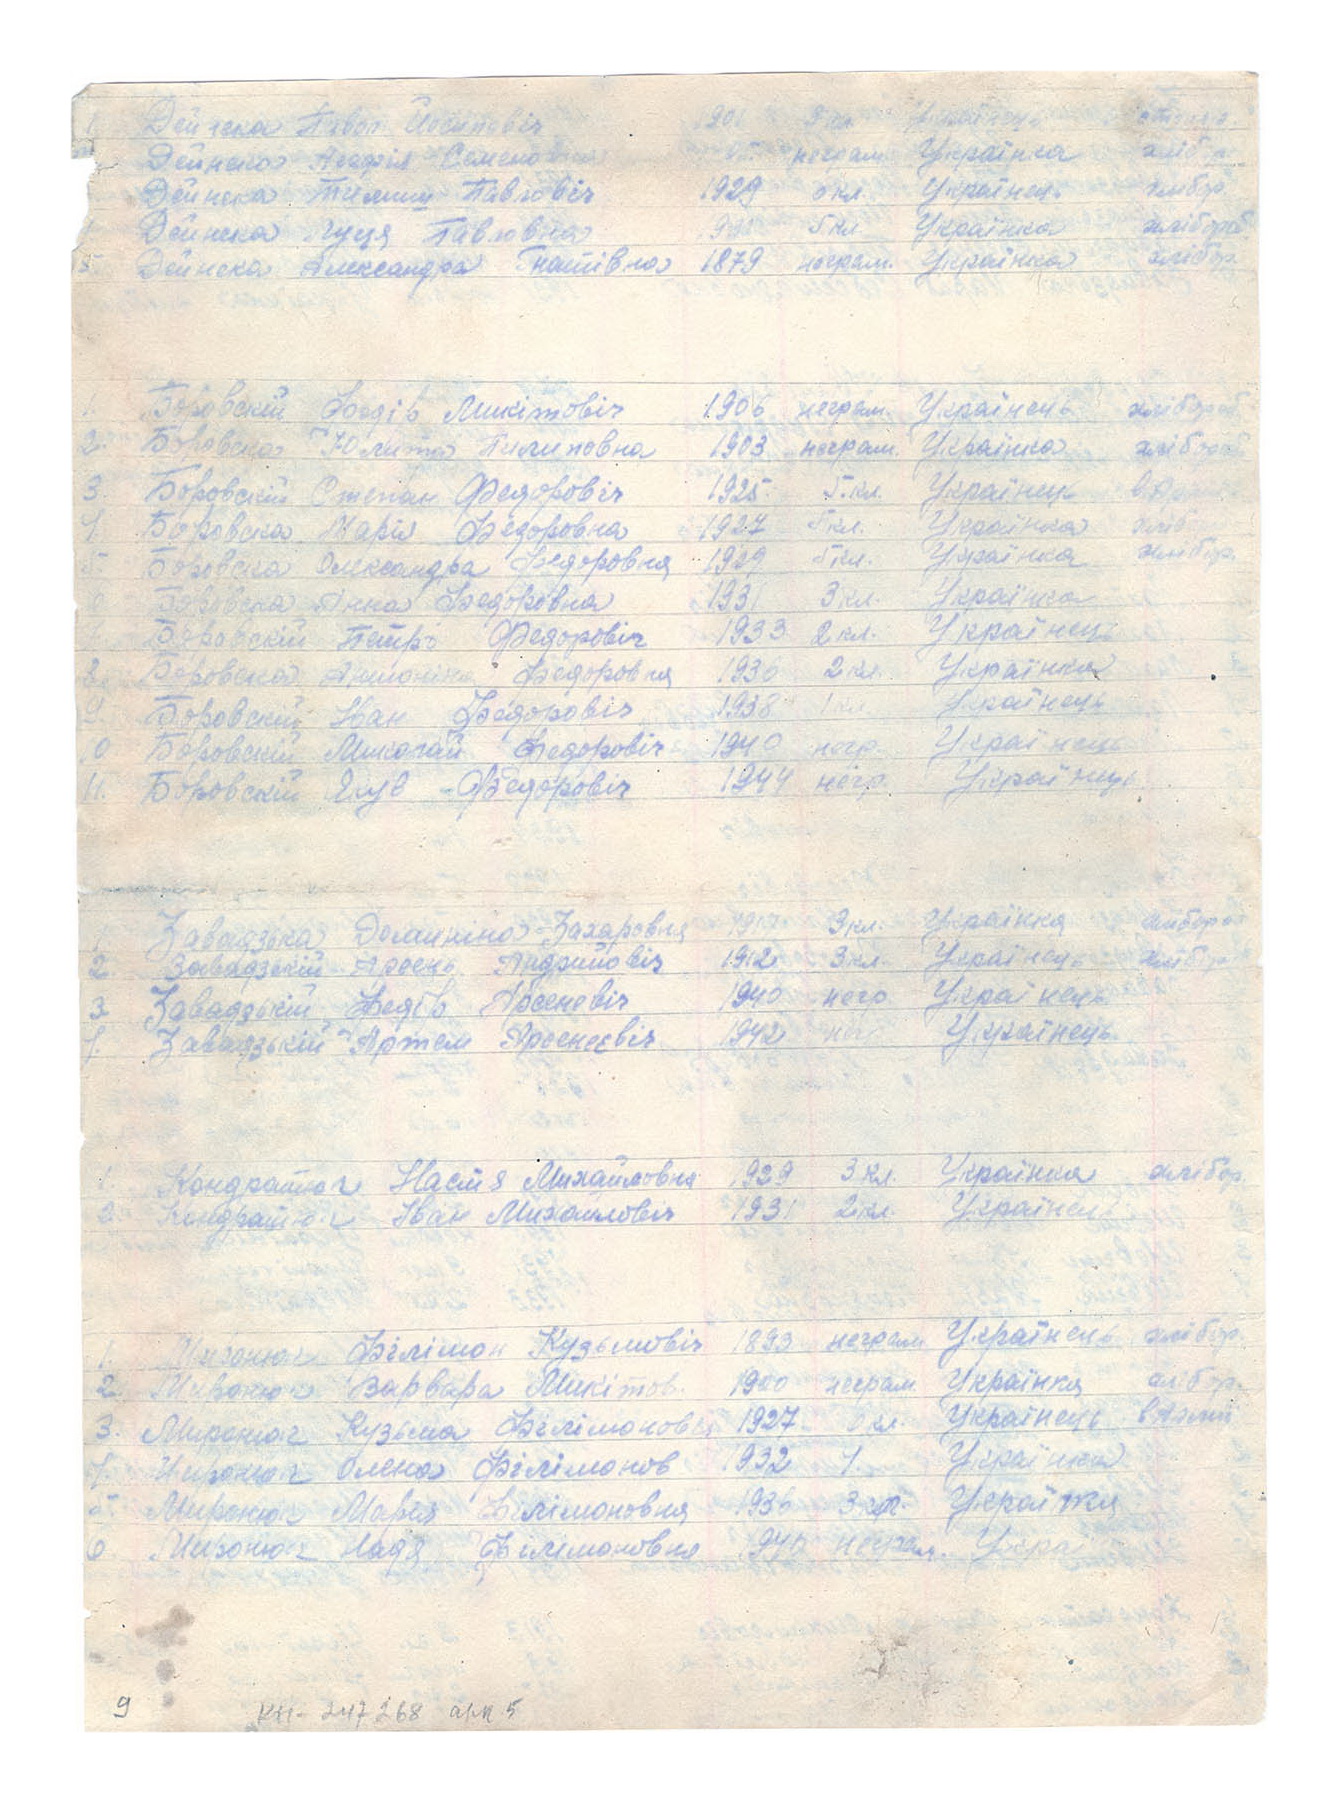 Дейнека Павол Йосиповіч 190 5 кл. Українець
Дейнека Агафія Семено неграм. Українка хлібор.
Дейнека Тимиш Павловіч 1929 6 кл. Українець хлібор.
Дейнека Луця Павловна 5 кл. Українка хлібороб
5. Дейнека Александра Гнатівна 1879 неграм. Українка хлібор.
1. Боровскій Федів Микітовіч 1906 неграм. Українець хлібороб.
2. Боровска Юлита Пилиповна 1903 неграм. Українка хлібороб.
3. Боровскій Степан Федоровіч 1925 5 кл. Українец
4. Боровска Марія Федоровна 1927 5 кл. Українка хліб
5. Боровска Олександра Федоровня 1929 5 кл. Українка хлібор.
6 Боровска Анна Федоровна 1931 3 кл. Українка
7. Боровскій Петро Федоровіч 1933 2 кл. Українець
8. Боровска Антоніна Федоровня 1936 2 кл. Українка
9. Боровскій Іван Федоровіч 1938 1 кл. Українець
0 Боровскій Миколай Федоровіч 1940 негр. Українець
11. Боровскій Федоровіч 1944 негр. Українець
1 Завадзька Доминіна Захаровня 3 кл. Українкя хлібороб
2. Завадзькій Арсень Андрийовіч 1912 3 кл. Українець хлібор.
3. Завадзькій Федів Арсеневіч 1940 негр Українець
4. Завадзькій Артем Арсенєвіч 1942 нег Українець
1. Кондратюк Настя Михайловня 1929 3 кл. Українкя хлібор.
2. Кондратюк Іван Михайловіч 1931 2 кл. Українець
1. Миронюк Філімон Кузьмовіч 1893 неграм Українець хлібор.
2. Миронюк Варвара Микітов. 1900 неграм. Українкя хлібор.
3. Миронюк Кузьма Філімонов 1927 кл. Українець в Армії
4. Миронюк Олена Філімонов 1932 Українка
5. Миронюк Марія Філімоновня 1936 Українкя
6. Миронюк Надя Філімоновня 194 неграм. Украї
9 КН-247268 арк 5